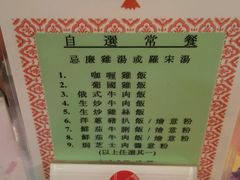 自選常餐
忌廉雞湯或羅宋湯
1. 咖喱雞飯
2. 葡國雞飯
3. 俄式牛肉飯
4. 生炒牛肉飯
5. 生炒雞絲飯
6. 洋蔥豬扒飯/燴意粉
7. 鮮茄牛脷飯/燴意粉
8. 鮮茄牛肉飯/燴意粉
9. 焗芝士肉醬意粉
(以上任選其一)